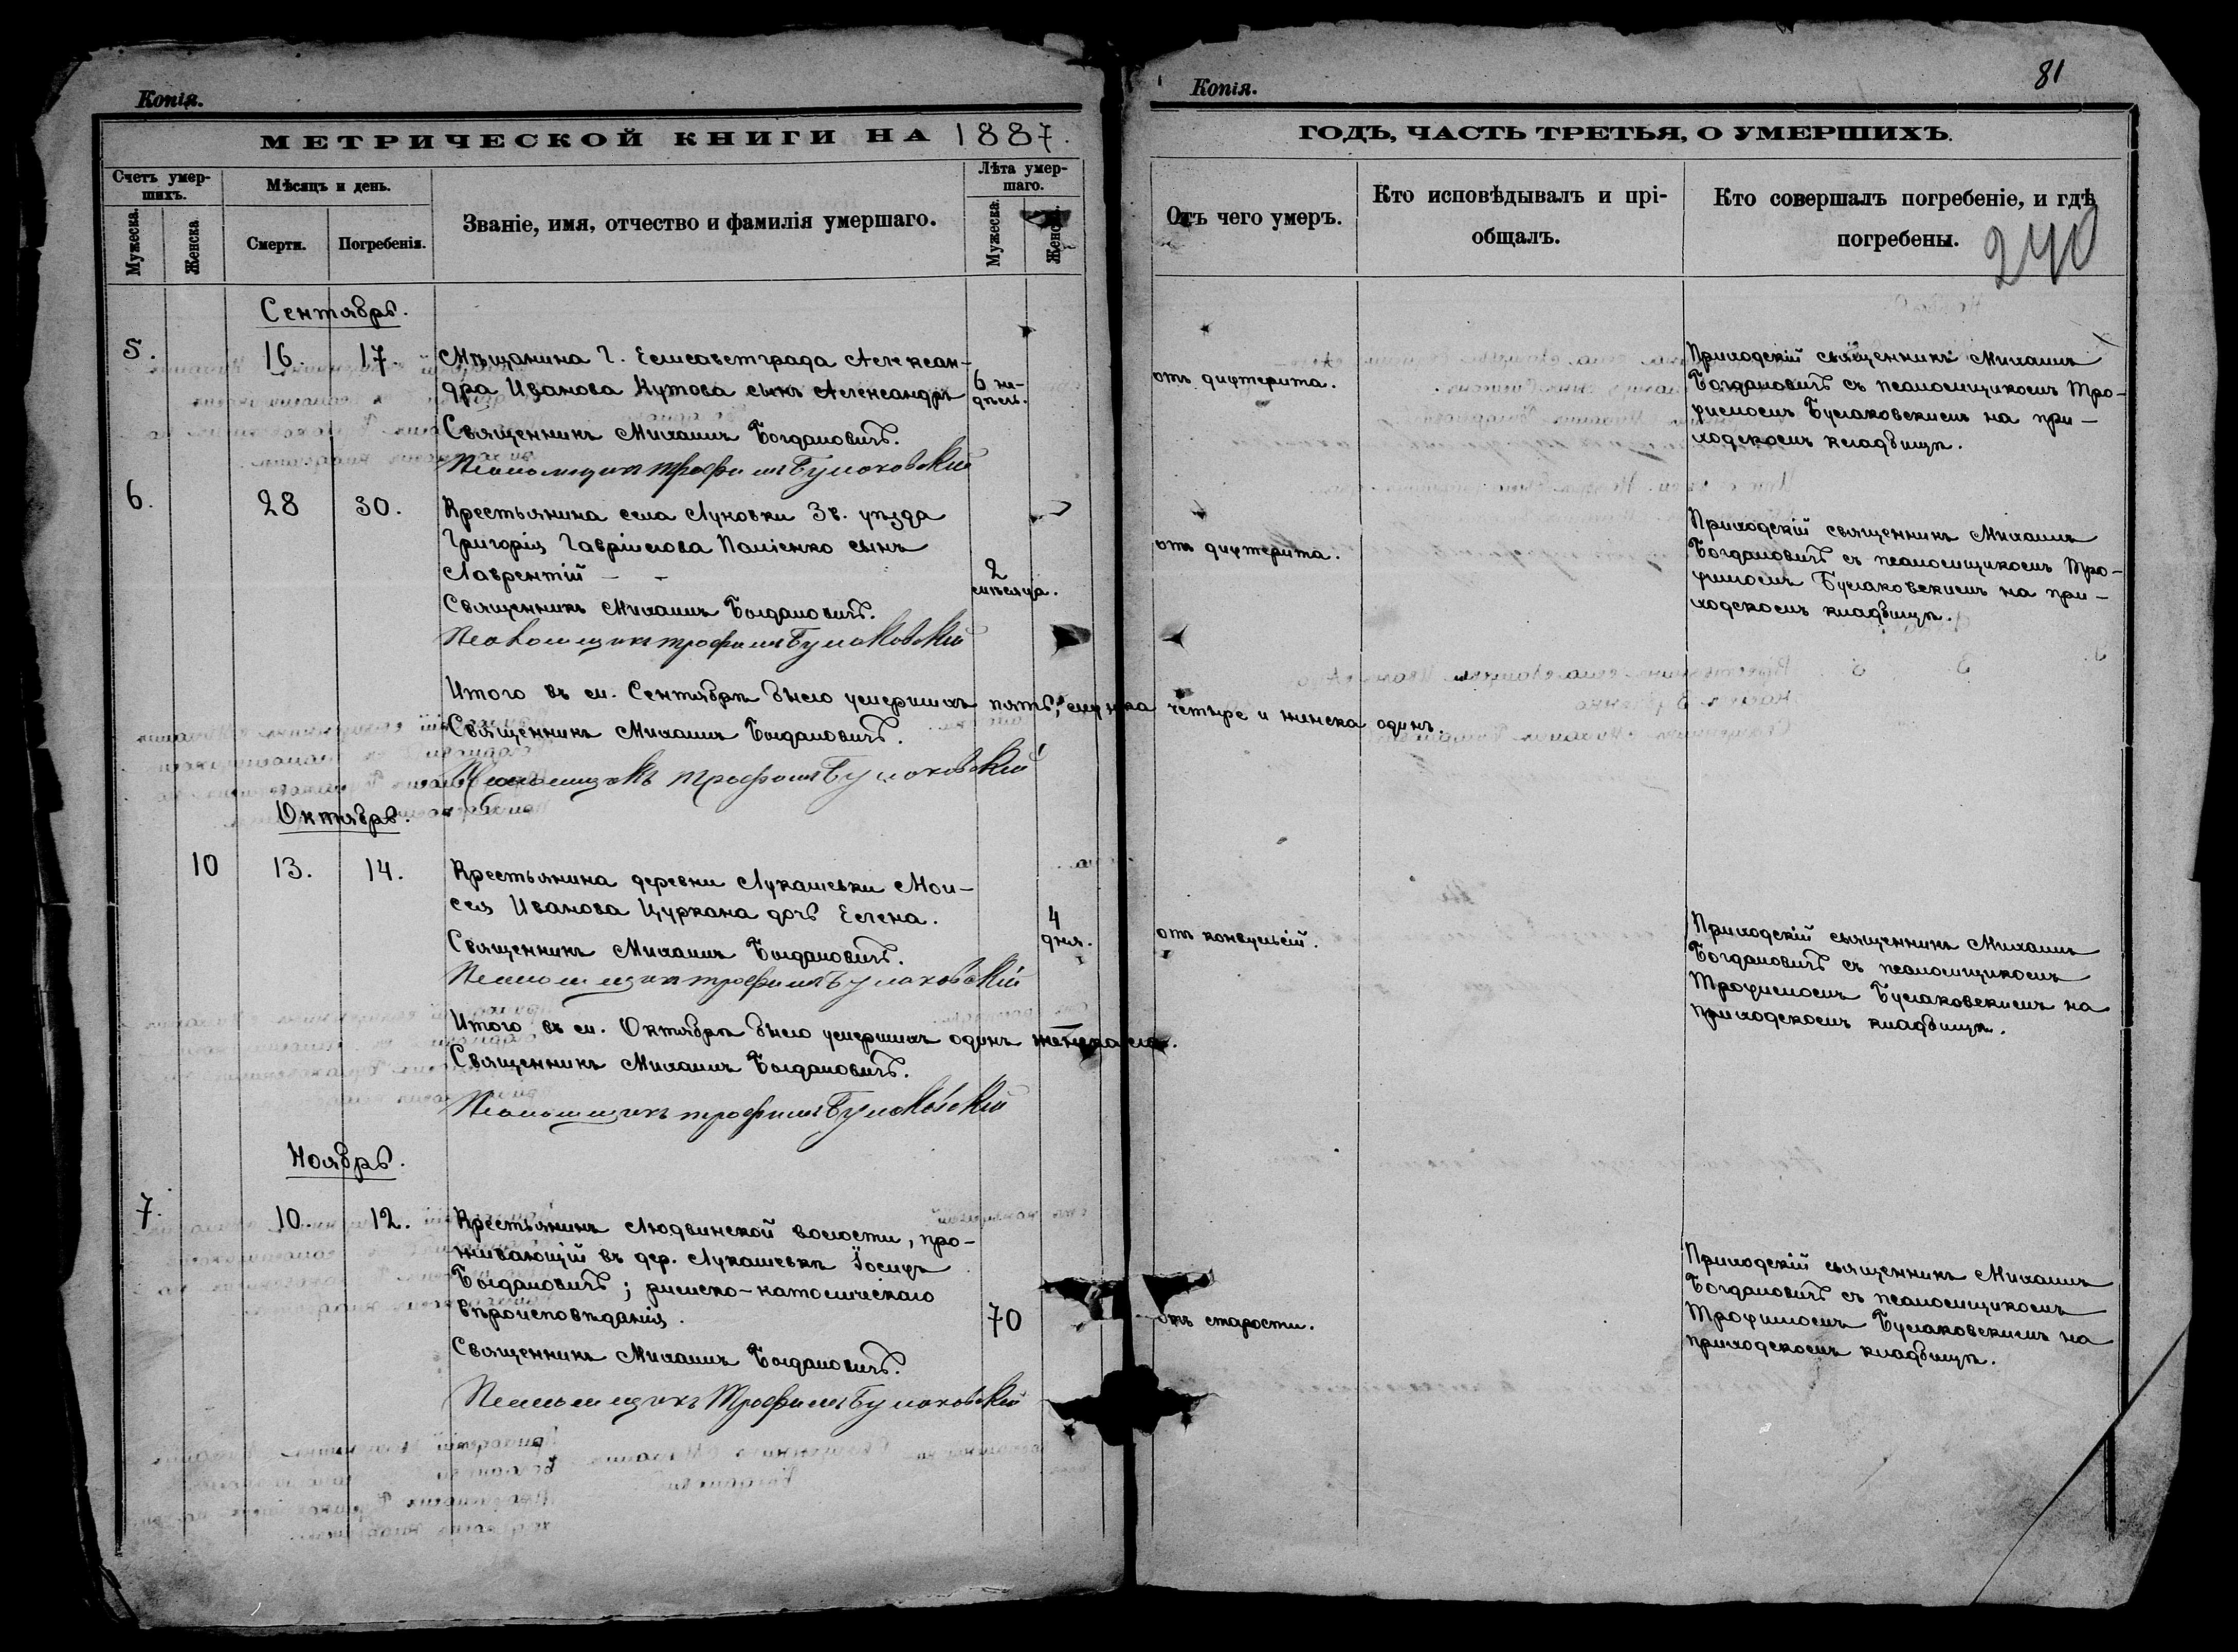 Копія.
МЕТРИЧЕСКОЙ КНИГИ НА 1887.
Счетъ умер-
шихъ.
Мужеска.
Женска
Мѣсяцъ и день.
Смерти.
Погребенія.
Званіе, имя, отчество и фамилія умершаго.
Лѣта умер-
шаго.
Мужеска.
Женс
Сентябрь.
5.
16. 17.
Мѣщанина г. Елисаветграда Алексан-
дра Иванова Кутова сынъ Александръ
6 не-
дѣль.
Священникъ Михаилъ Богдановичъ.
Псаломщикъ Трофимъ Булаковскій
6.
28 30.
Крестьянина села Луковки Зв. уѣзда
Григорія Гавріилова Паліенко сынъ
Лаврентій – -
2
мѣсяца.
Священникъ Михаилъ Богдановичъ.
Псаломщикъ Трофимъ Булаковскій
Итого въ м. Сентябрѣ было умершихъ пять; мужска четыре и женска одинъ.
Священникъ Михаилъ Богдановичъ.
Псаломщикъ Трофимъ Булаковскій
Октябрь.
10 13. 14.
Крестьянина деревни Лукашевки Мои-
сея Иванова Цуркана дочь Елена.
4
дня.
Священникъ Михаилъ Богдановичъ.
Псаломщикъ Трофимъ Булаковскій
Итого въ м. Октябрѣ было умершихъ одинъ женска
Священникъ Михаилъ Богдановичъ.
Псаломщикъ Трофимъ Булаковскій
Ноябрь.
7.
10. 12.
Крестьянинъ Людвинской волости, про-
живающій въ дер. Лукашевкѣ Іосифъ
Богдановичъ; римско-католическаго
вѣроисповѣданія.
70
Священникъ Михаилъ Богдановичъ.
Псаломщикъ Трофимъ Булаковскій
Копія.
81
ГОДЪ, ЧАСТЬ ТРЕТЬЯ, О УМЕРШИХЪ.
Отъ чего умеръ.
Кто исповѣдывалъ и прі-
общалъ.
Кто совершалъ погребеніе, и гдѣ
погребены.
240
отъ дифтерита.
Приходскій священникъ Михаилъ
Богдановичъ съ псаломщикомъ Тро-
фимомъ Булаковскимъ на при-
ходскомъ кладбищѣ.
отъ дифтерита.
Приходскій священникъ Михаилъ
Богдановичъ съ псаломщикомъ Тро-
фимомъ Булаковскимъ на при-
ходскомъ кладбищѣ.
отъ конвульсій.
Приходскій священникъ Михаилъ
Богдановичъ съ псаломщикомъ
Трофимомъ Булаковскимъ на
приходскомъ кладбищѣ.
отъ старости.
Приходскій священникъ Михаилъ
Богдановичъ съ псаломщикомъ
Трофимомъ Булаковскимъ на
приходскомъ кладбищѣ.